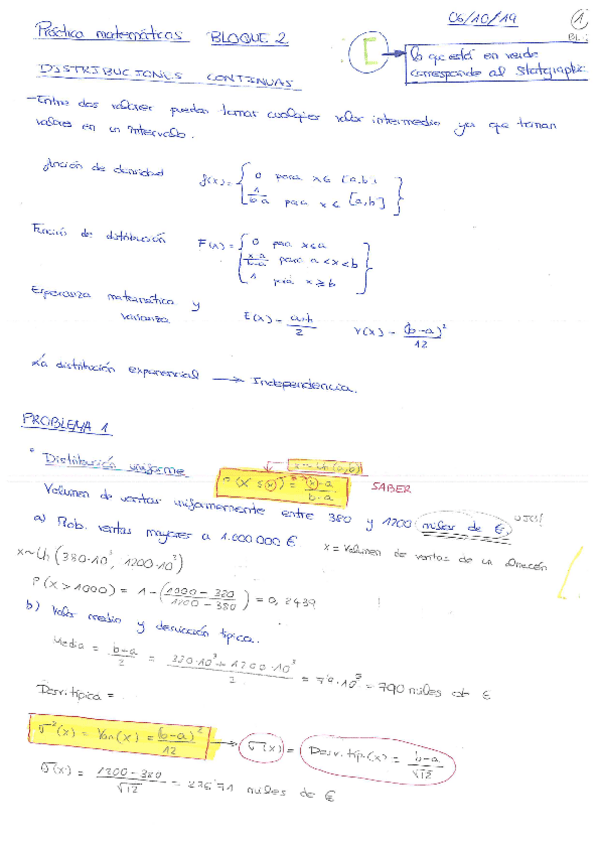 06/10/19
1
Práctica matemáticas BLOQUE 2
lo que está en verde
corresponde al Statgraphics
DISTRIBUCIONES CONTINUAS
-Entre dos valores pueden tomar cualquier valor intermedio ya que toman
valores en un intervalo.
función de densidad f(x) = { 0 para x ∈ [a,b)
1/b-a para x ∈ [a,b] }
Función de distribución F(x) = { 0 para x≤a
x-a/b-a para a<x<b
1 para x≥b }
Esperanza matemática y
varianza E(x) = a+b/2 V(x) = (b-a)²/12
La distribución exponencial → Independencia.
PROBLEMA 1
Distribución uniforme
x~U(a,b)
P(X≤x) = x-a/b-a SABER
Volumen de ventas uniformemente entre 380 y 1200 miles de €.
a) Prob. ventas mayores a 1.000.000 € x = Volumen de ventas de la
x~U(380·10³, 1200·10³)
P(X>1000) = 1-(1000-380/1200-380) = 0,2439
b) Valor medio y desviación típica.
Media = b-a/2 = 380·10³+1200·10³/2 = 790 miles de €
Desv. típica =
σ²(x) = Var(x) = (b-a)²/12 → σ(x) = Desv. típ(x) = b-a/√12
σ(x) = 1200-380/√12 = 236'71 miles de €